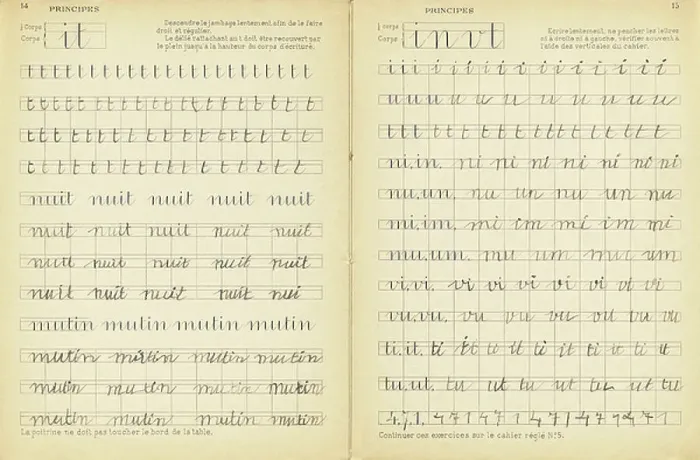 14 PRINCIPES
½ Corps
Corps
it
Descendre le jambage lentement afin de le faire
droit et régulier.
Le délié rattachant au t doit être recouvert par
le plein jusqu'à la hauteur du corps d'écriture.
t t t t t t t t t t t t t t t t t t t t t t
t t t t t t t t t t t t t t t t t t t
t t t t t t t t t t t t t t t t t t t
t t t t t t t t t t t t t t t t t
nuit nuit nuit nuit nuit
nuit nuit nuit nuit nuit
nuit nuit nuit nuit nuit
nuit nuit nuit nuit nui
mutin mutin mutin mutin mutin
mutin mutin mutin mutin
mutin mutin mutin mutin
mutin mutin mutin mutin
La poitrine ne doit pas toucher le bord de la table.
PRINCIPES 15
½ Corps
Corps
i n v t
Ecrire lentement, ne pencher les lettres
ni à droite ni à gauche, vérifier souvent à
l'aide des verticales du cahier.
i i i i i i i i i i i i i i i
u u u u u u u u u u u u
t t t t t t t t t t t t t t t t
ni.in. ni ni ni ni ni ni ni
nu.un. nu un nu un nu
mi.im. mi im mi im mi
mu.um. mu um mu um
vi.vi. vi vi vi vi vi vi
vu.vu. vu vu vu vu vu
ti.it. ti it ti it ti it ti it
tu.ut. tu ut tu ut tu ut tu
4.7.1. 4 7 1 4 7 1 4 7 1 4 7 1 4 7 1
Continuer ces exercices sur le cahier réglé N°5.